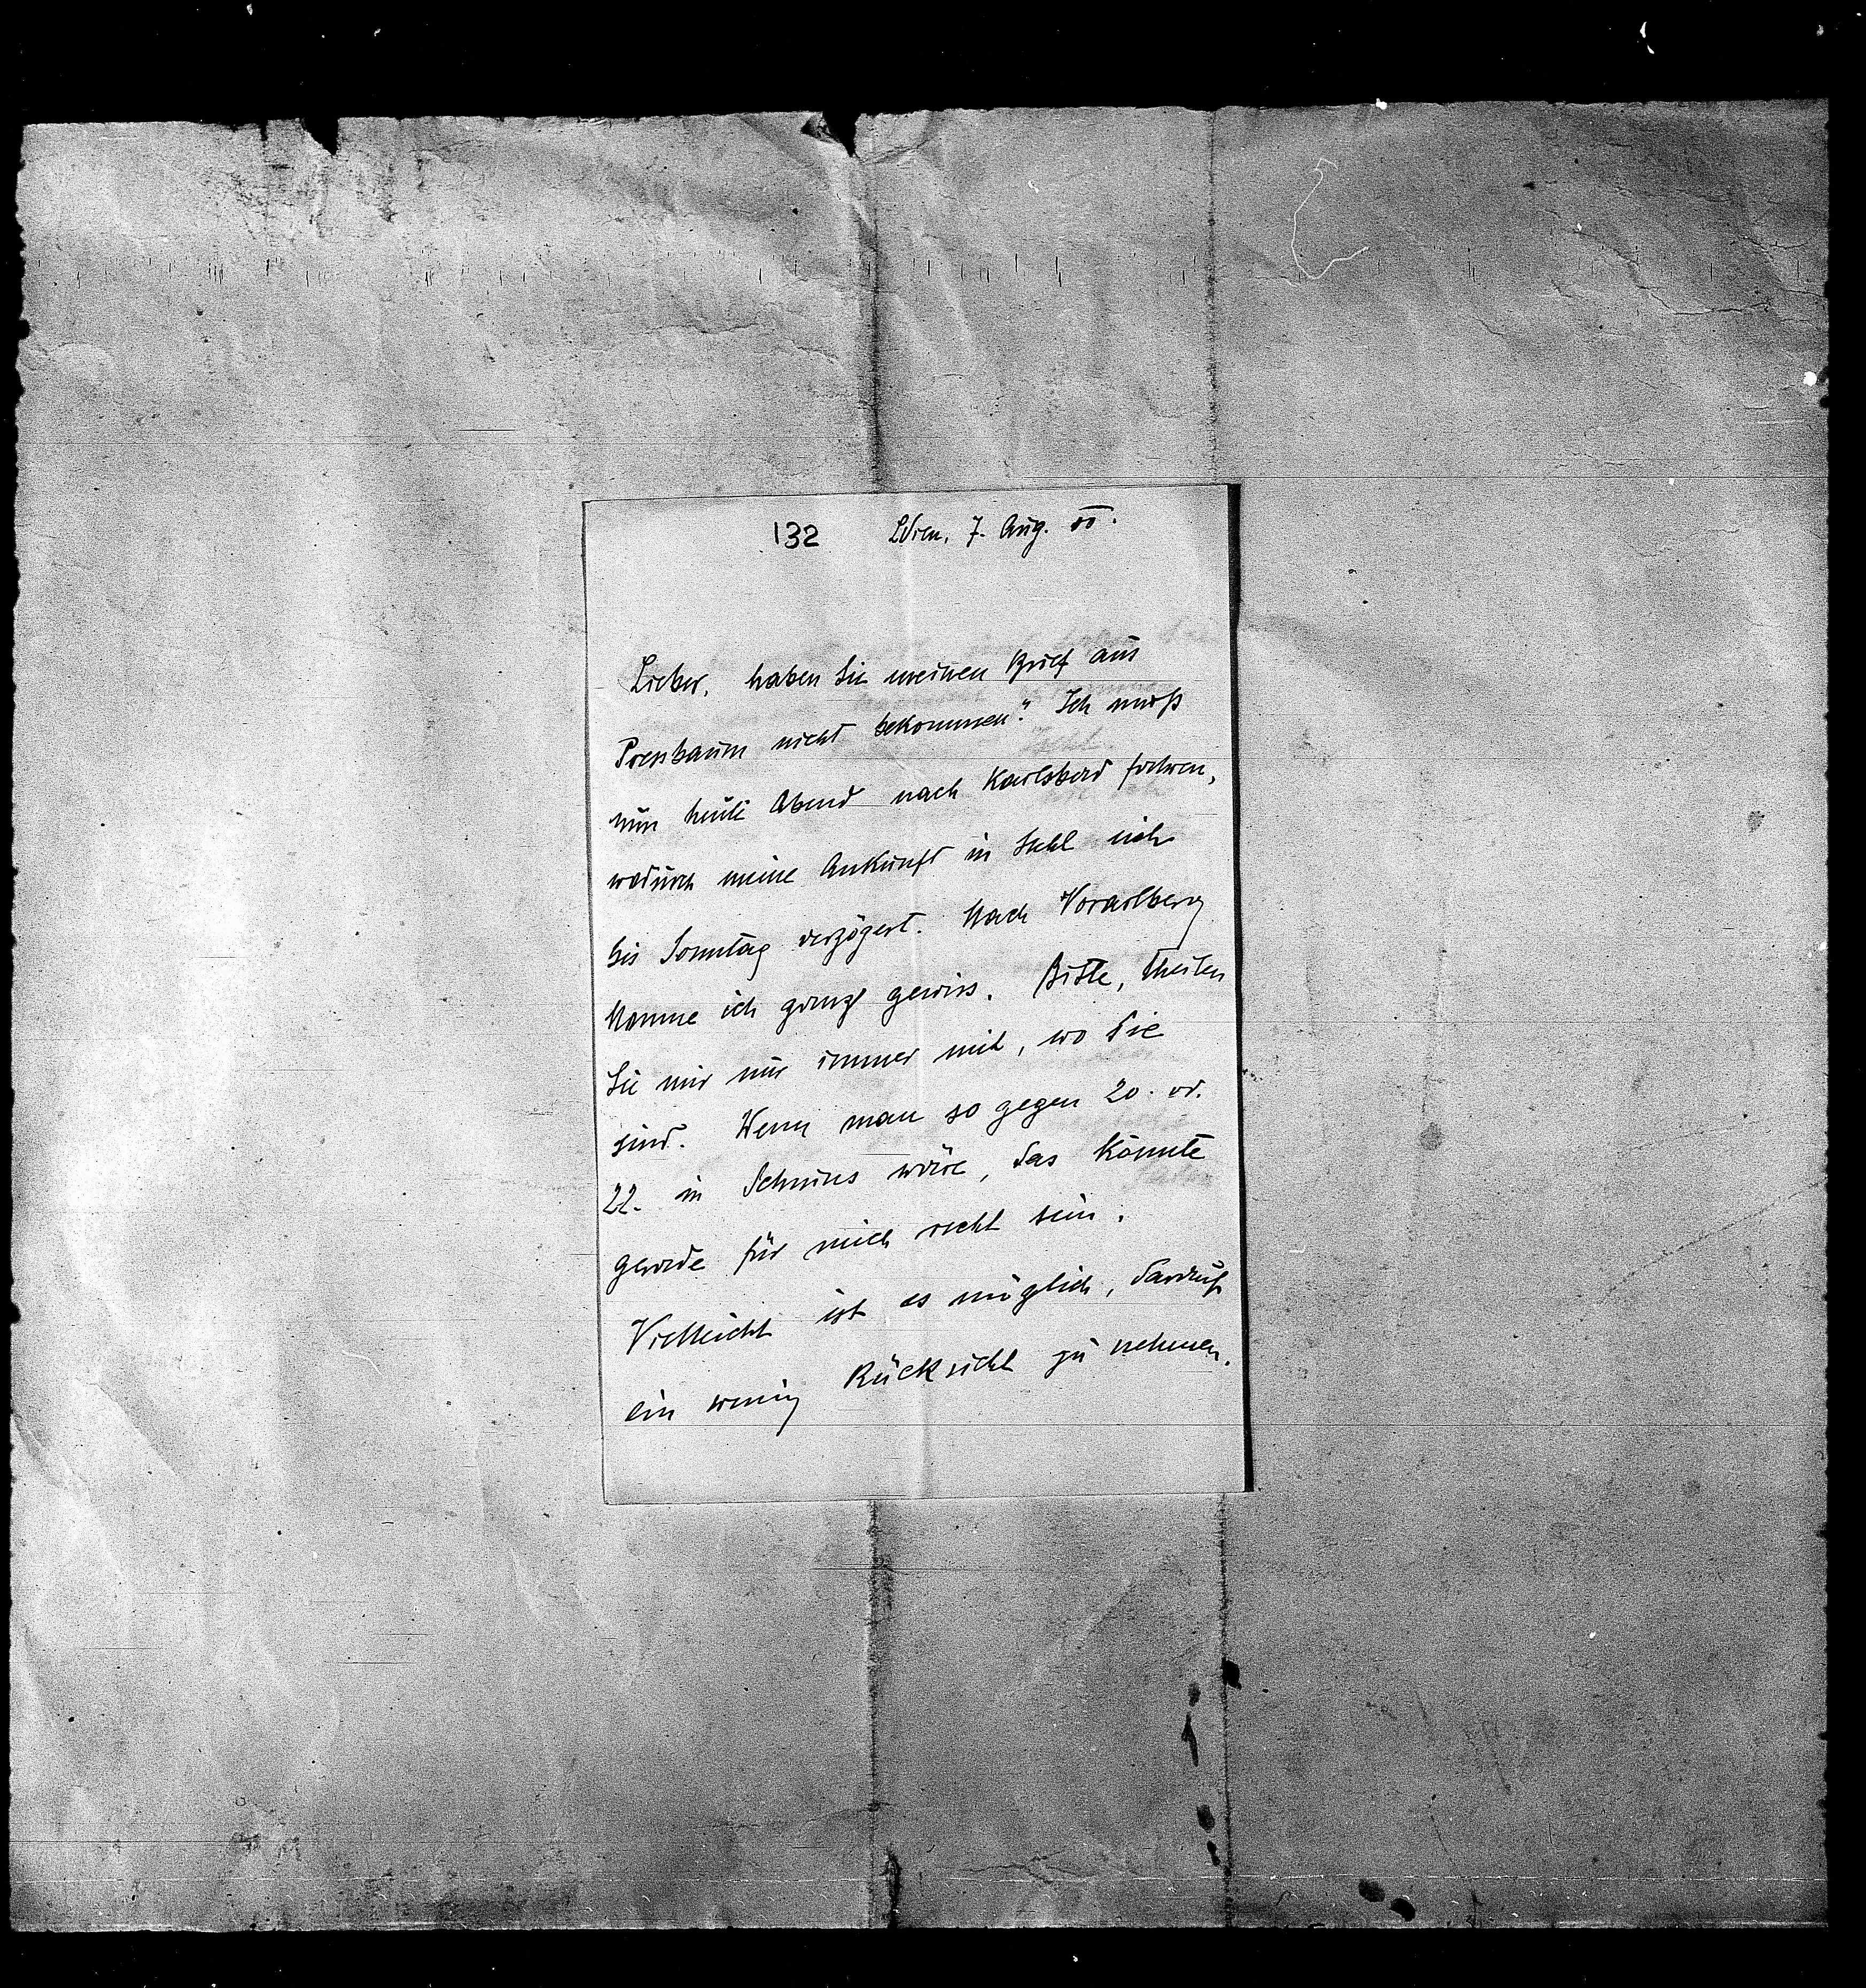 132 Wien, 7. Aug. 00.
Lieber, haben Sie meinen Brief aus
nicht bekommen? Ich muß
nun heute Abend nach Karlsbad fahren,
wodurch meine Ankunft in Ischl sich
bis Sonntag verzögert. Nach Vorarlberg
komme ich ganz gewiss. Bitte, theilen
Sie mir nur immer mit, wo Sie
sind. Wenn man so gegen 20. od.
22. in Schruns wäre, das könnte
gerade für mich recht sein.
Vielleicht ist es möglich, darauf
ein wenig Rücksicht zu nehmen.